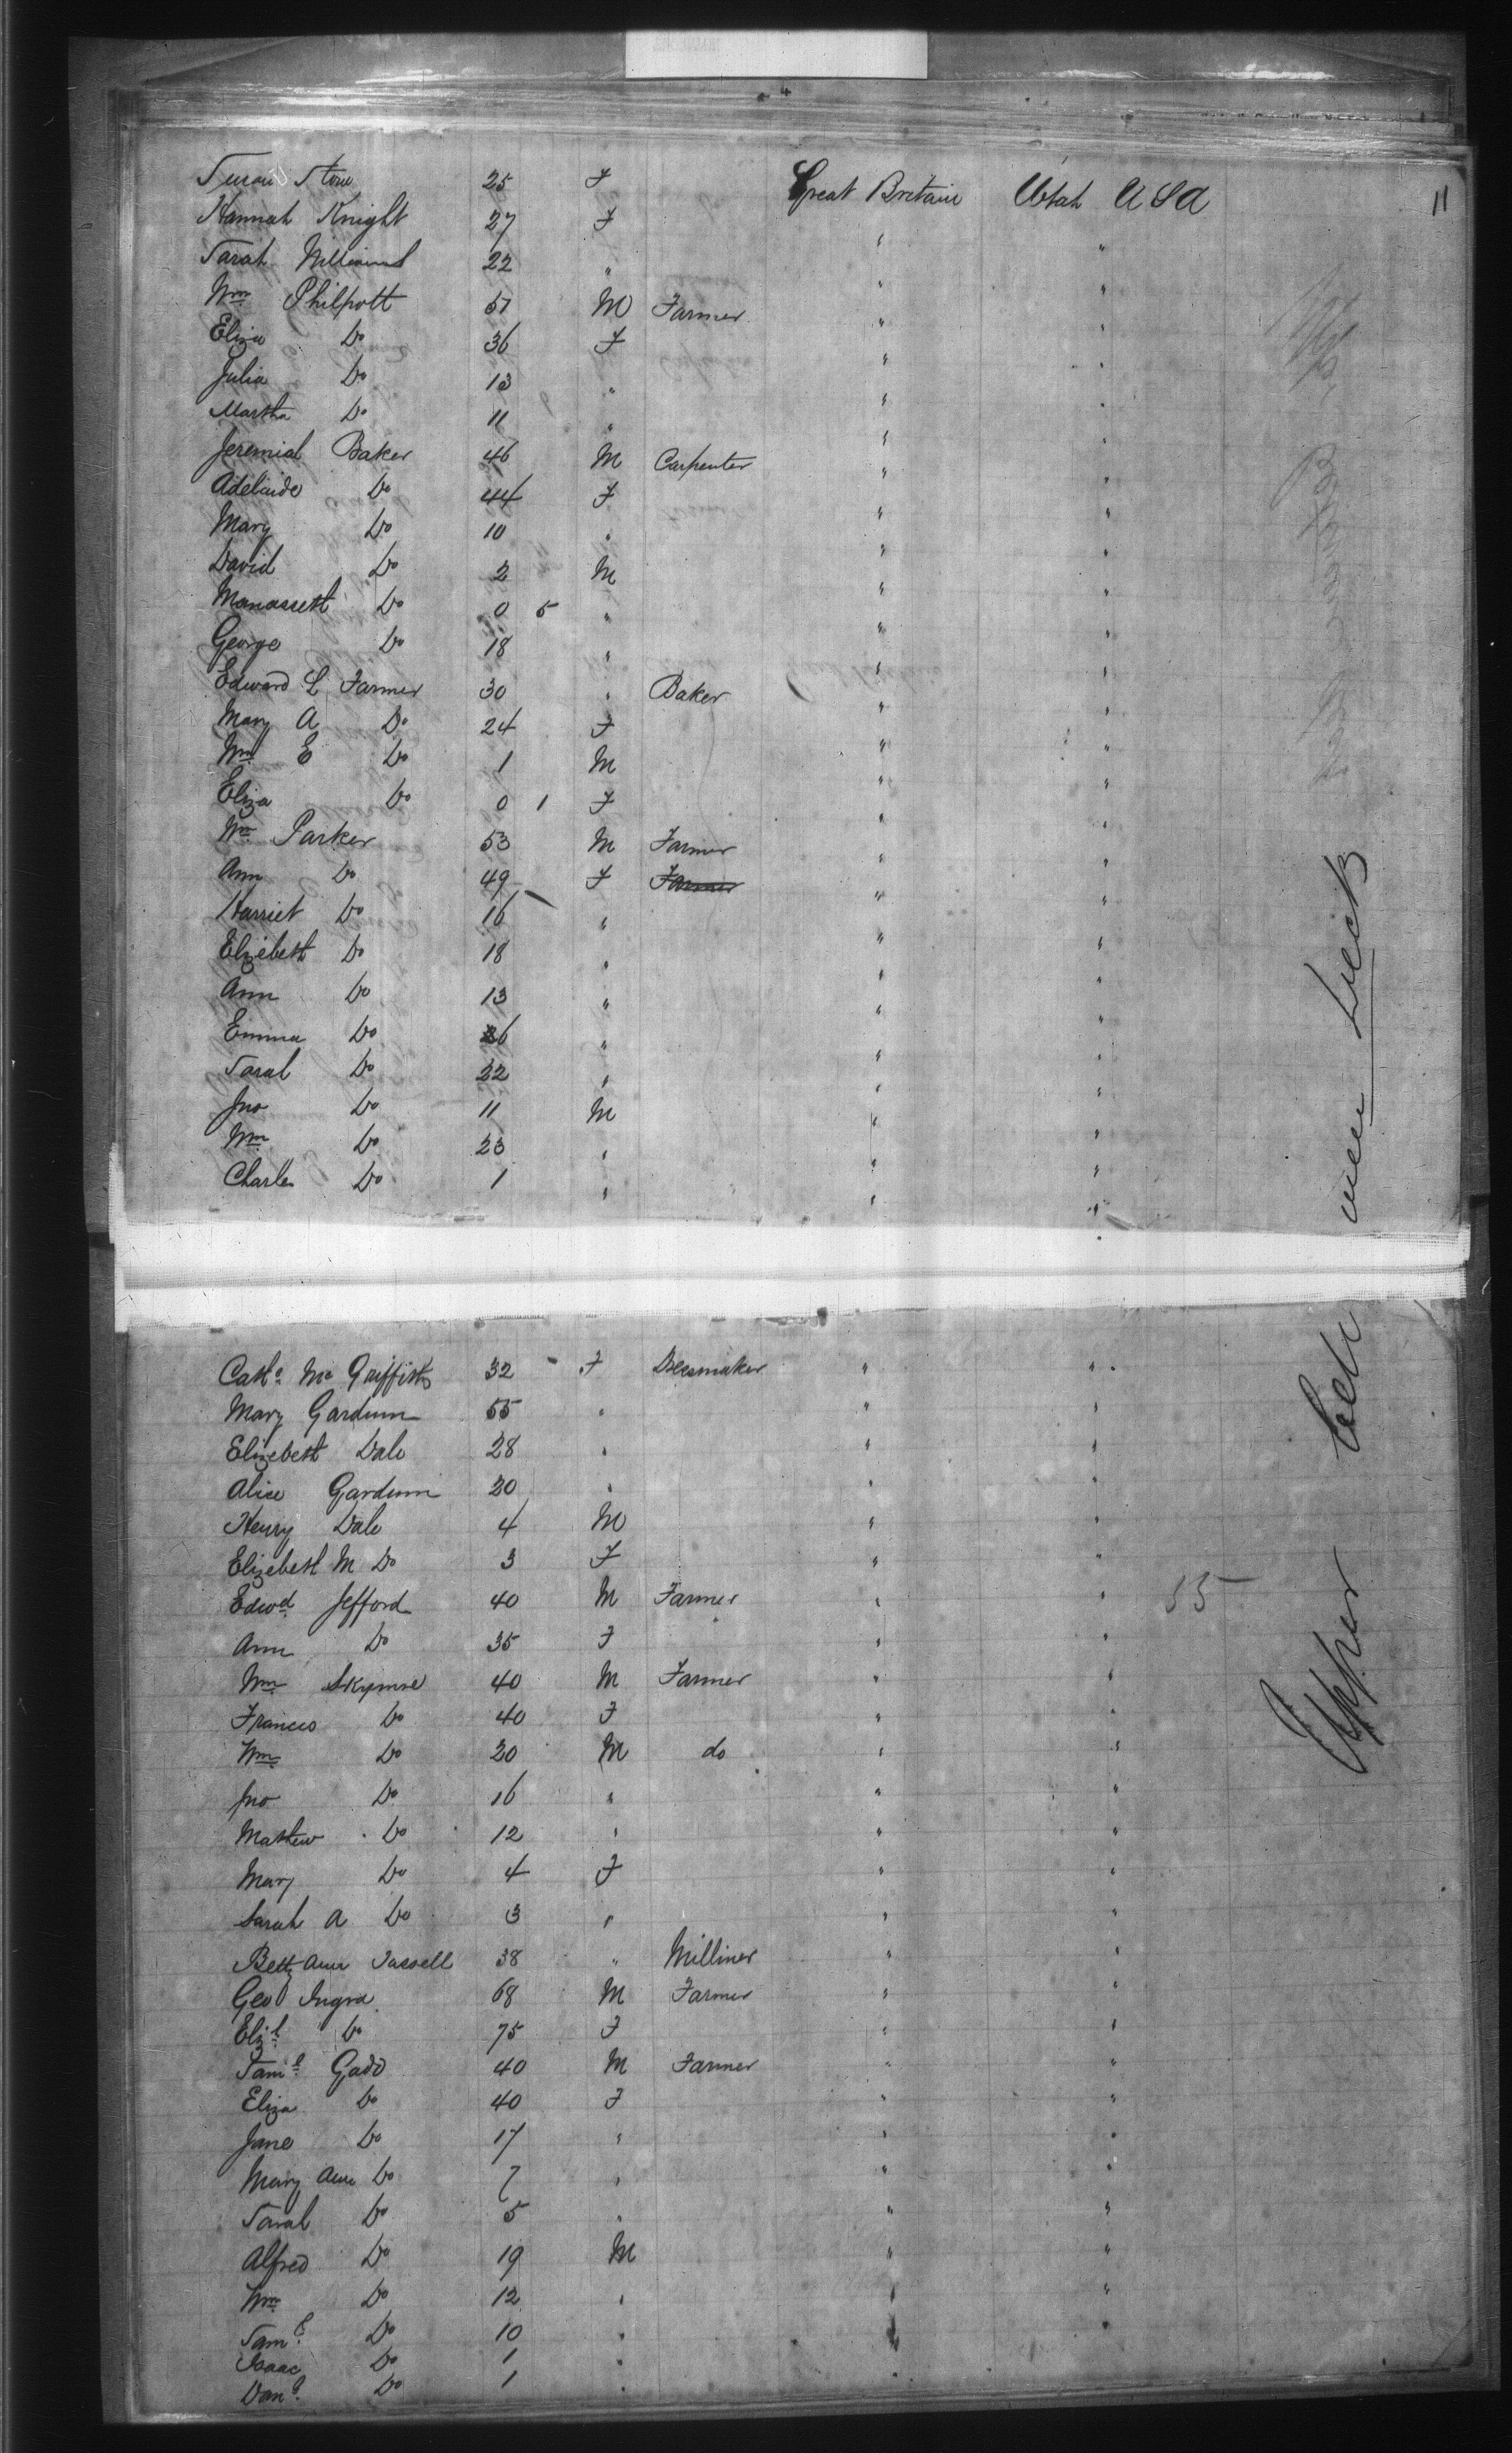 Susan Stone 25 F Great Britain Utah USA 11
Hannah Knight 27 F " "
Sarah Williams 22 " " "
Wm Philpott 51 M Farmer " "
Eliza Do 36 F " "
Julia Do 13 " " "
Martha Do 11 " " "
Jeremiah Baker 46 M Carpenter " "
Adelaide Do 44 F " "
Mary Do 10 " " "
David Do 2 M " "
Manasseth Do 0 5 " " "
George Do 18 " " "
Edward L Farmer 30 " Baker " "
Mary A Do 24 F " "
Wm E Do 1 M " "
Eliza Do 0 1 F " "
Wm Parker 53 M Farmer " "
Ann Do 49 F Farmer " "
Harriet Do 16 " " "
Elizebeth Do 18 " " "
Ann Do 13 " " "
Emma Do 26 " " "
Sarah Do 22 " " "
Jno Do 11 M " "
Wm Do 23 " " "
Charles Do 1 " " "
Cathe Mc Griffiths 32 F Dressmaker " "
Mary Gardum 55 " " "
Elizebeth Dale 28 " " "
Alice Gardum 20 " " "
Henry Dale 4 M " "
Elizebeth M Do 3 F " "
Edwd Jefford 40 M Farmer " " 55
Ann Do 35 F " "
Wm Skymne 40 M Farmer " "
Frances Do 40 F " "
Wm Do 20 M do " "
Jno Do 16 " " "
Mathew Do 12 " " "
Mary Do 4 F " "
Sarah A Do 3 " " "
Betty Ann Tassell 38 " Milliner " "
Geo Ingra 68 M Farmer " "
Elizh Do 75 F " "
Saml Gadd 40 M Farmer " "
Eliza Do 40 F " "
Jane Do 17 " " "
Mary Ann Do 7 " " "
Sarah Do 5 " " "
Alfred Do 19 M " "
Wm Do 12 " " "
Saml Do 10 " " "
Isaac Do 1 " "
Danl Do 1 " "
Upper